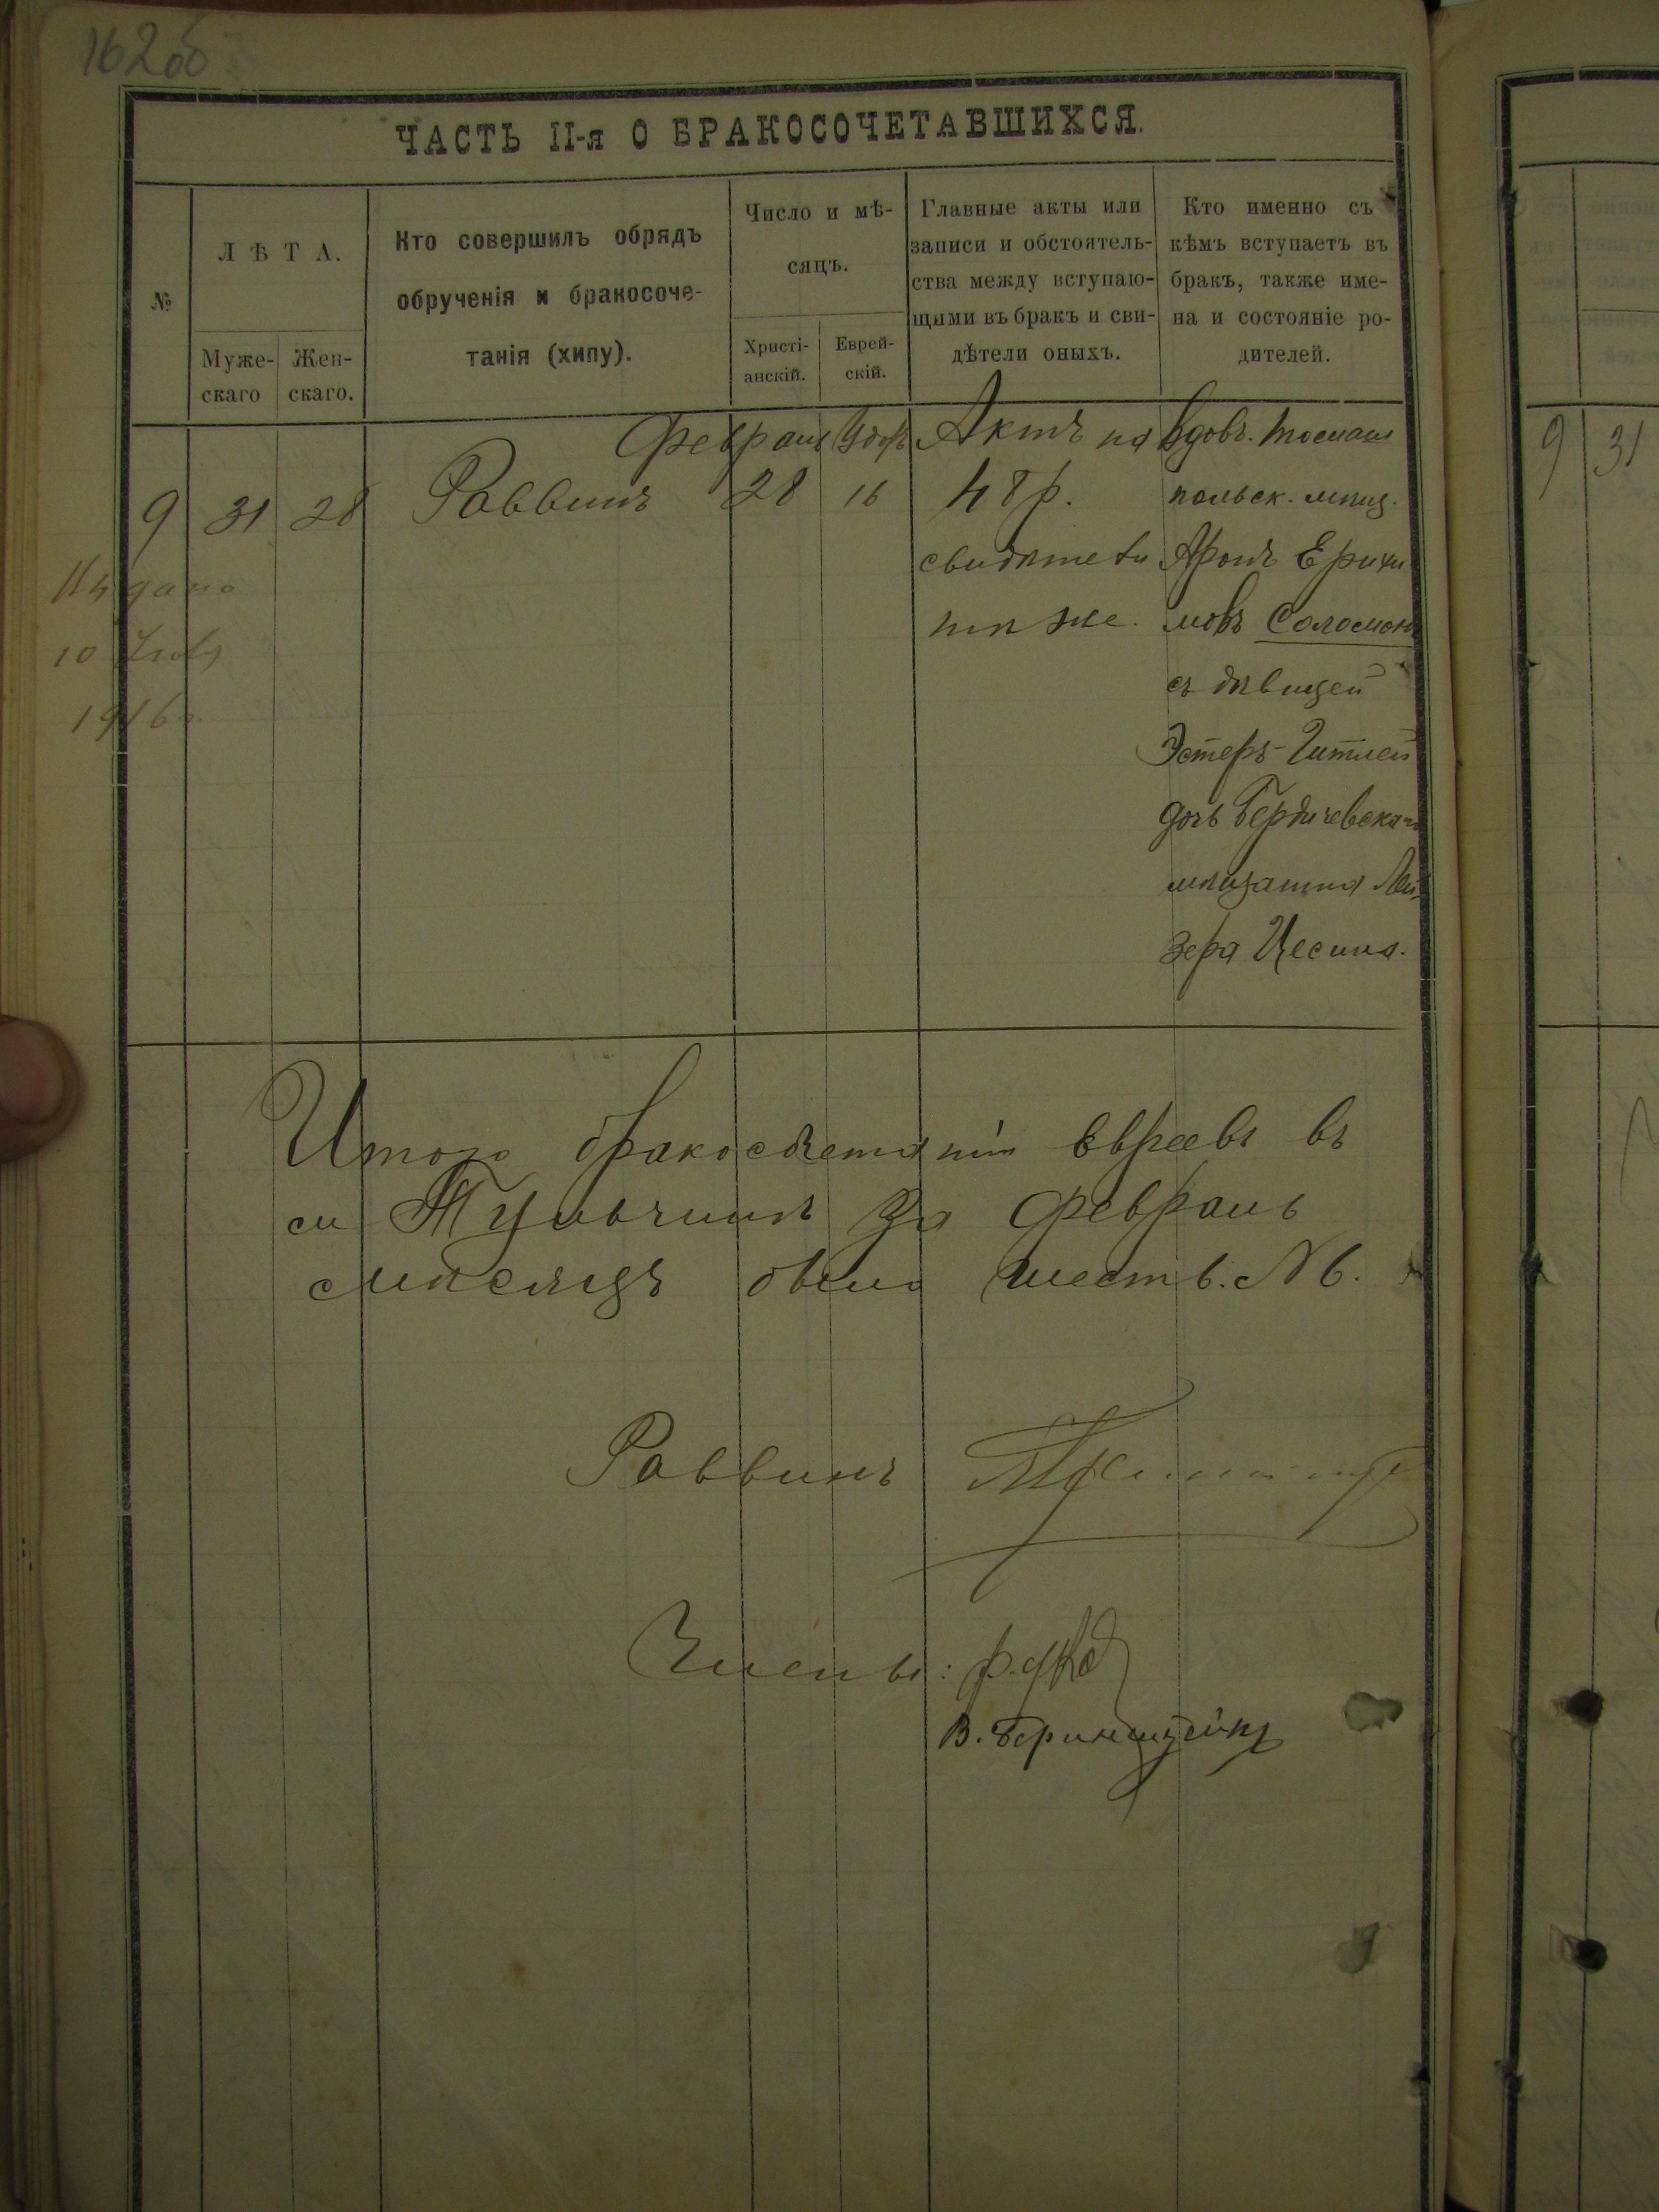 162 об
ЧАСТЬ II-я О БРАКОСОЧЕТАВШИХСЯ.
№
ЛѢТА.
Муже-
скаго
Жен-
скаго.
Кто совершилъ обрядъ
обрученія и бракосоче-
танія (хипу).
Число и мѣ-
сяцъ.
Христі-
анскій.
Еврей-
скій.
Главные акты или
записи и обстоятель-
ства между вступаю-
щими въ бракъ и сви-
дѣтели оныхъ.
Кто именно съ
кѣмъ вступаетъ въ
бракъ, также име-
на и состояніе ро-
дителей.
9
31
28
Раввинъ
Февраля
28
16
Актъ на
48 р.
свидѣтели
тѣ же.
вдов. Томаш
польск. мѣщ.
Аронъ Ерухи
мовъ Соломон
съ дѣвицей
Эстеръ-Гитлей
дочь Бердичевскаго
мѣщанина Лей
зера Цесина.
10
1916 г.
Итого бракосочетаній евреевъ въ
м Тульчинѣ за Февраль
мѣсяцъ было шесть. № 6.
Раввинъ
Члены:
В. Беринштейнъ
9
31